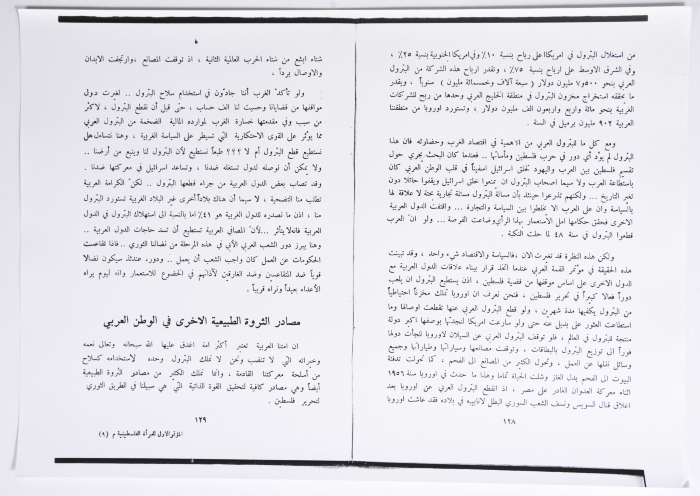 من استغلال البترول في امريكا اعلى رباح بنسبة ١٠٪ وفي امريكا الجنوبية بنسبة ٢٥٪ ،
وفي الشرق الاوسط على ارباح بنسبة ٧٥٪ ، وتقدر ارباح هذه الشركة من البترول
العربي بنحو ٧٥٠٠ مليون دولار ( سبعة آلاف وخمسمائة مليون ) سنوياً . ويقدر
ما تحققه استخراج مخزون البترول في منطقة الخليج العربي وحدها من ربح للشركات
الغربية بنحو مائة واربع واربعون الف مليون دولار ، وتستورد اوروبا من منطقتنا
العربية ٩٠٢ مليون برميل في السنة .
ومع كل ما للبترول العربي من الاهمية في اقتصاد الغرب وحضارته فان هذا
البترول لم يؤد أي دور في حرب فلسطين ومأساتها .. فعندما كان البحث يجري حول
تقسيم فلسطين بين العرب واليهود لخلق اسرائيل اسفيناً في قلب الوطن العربي كان
باستطاعة العرب ولا سيما اصحاب البترول ان يمنعوا خلق اسرائيل ويقفوا حائلا دون
تغير التاريخ ... ولكنهم تذرعوا حينئذ بأن مسألة البترول مسألة تجارية بحتة لا علاقة لها
بالسياسة وان على العرب الا يخلطوا بين السياسة والتجارة ... واقنعت الدول العربية
الاخرى فحقق حكامها امل الاستعمار بهذا الرأي وضاعت الفرصة ... ولو ان العرب
قطعوا البترول في سنة ٤٨ لما حلت النكبة .
ولكن هذه النظرة قد تغيرت الان ، فالسياسة والاقتصاد شيء واحد ، وقد تبينت
هذه الحقيقة في مؤتمر القمة العربي عندما اتخذ قرار ببناء علاقات الدول العربية مع
الدول الاخرى على اساس موقفها من قضية فلسطين ، اذن يستطيع البترول ان يلعب
دوراً فعالا كبيراً في تحرير فلسطين ، فنحن نعرف ان اوروبا تملك مخزناً احتياطياً
من البترول يكفيها مدة شهرين ، ولو قطع البترول العربي عنها تقطعت اوصالها وما
استطاعت العثور على بديل عنه حتى ولو سارعت امريكا لنجدتها بوصفها اكبر دولة
منتجة للبترول في العالم ، فلو توقف البترول العربي عن السيلان لاوروبا للجأت دولها
فوراً الى توزيع البترول بالبطاقات ، وتوقفت مصانعها وسياراتها وطياراتها وجميع
وسائل نقلها عن العمل ، وتحول الكثير من المصانع الى الفحم ، كما تحولت تدفئة
البيوت الى الفحم بدل الغاز وشلت الحياة تماما وهذا ما حدث في اوروبا سنة ١٩٥٦
اثناء معركة العدوان الغادر على مصر ، اذ انقطع البترول العربي عن اوروبا بعد
اغلاق قنال السويس ونسف الشعب السوري البطل لانابيبه في بلاده فقد عاشت اوروبا
١٢٨
شتاء ابشع من شتاء الحرب العالمية الثانية ، اذ توقفت المصانع ، وارتجفت الابدان
والاوصال برداً ،
ولو تأكد الغرب أننا جادون في استخدام سلاح البترول .. لغيرت دول
مواقفها من قضايانا وحسبت لنا الف حساب ، حتى قبل أن نقطع البترول ، لاكثر
من سبب وفي مقدمتها خسارة الغرب لموارده المالية الضخمة من البترول العربي
مما يؤثر على القوى الاحتكارية التي تسيطر على السياسة الغربية . وهنا نتساءل هل
نستطيع قطع البترول أم لا ؟؟؟ طبعاً نستطيع لأن البترول لنا وينبع من أرضنا ..
ولا يمكن أن نوصله لدول تستغله ضدنا ، وتساعد اسرائيل في معركتها ضدنا .
وقد تصاب بعض الدول العربية من جراء قطعها البترول .. لكن الكرامة العربية
تطلب منا التضحية ، لا سيما أن هناك بلاداً أخرى غير البلاد العربية تستورد البترول
منا ، اذن ما تصدره للدول الغربية هو ٤١٪ اما بالنسبة الى استهلاك البترول في الدول
العربية فانه لا يتأثر ... لأن المصافي العربية تستطيع أن تسد حاجات الدول العربية ..
وهنا يبرز دور الشعب العربي الآبي في هذه المرحلة من نضالنا الثوري .. فاذا تقاعست
الحكومات عن العمل كان واجب الشعب أن يعمل .. ودور، عندئذ سيكون نضالا
قوياً ضد المتقاعسين وضد الغارقين لآذانهم في الخضوع للاستعمار وانه ليوم يراه
الأعداء بعيداً ونراه قريباً .
مصادر الثروة الطبيعية الاخرى في الوطن العربي
ان امتنا العربية تعتبر أكبر امة اغدق عليها الله سبحانه وتعالى نعمه
وخيراته التي لا تنضب ونحن لا نملك البترول وحده لاستخدامه كسلاح
من أسلحة معركتنا القادمة ، وانما نملك الكثير من مصادر الثروة الطبيعية
أيضاً وهي مصادر كافية لتحقيق القوة الذاتية التي هي سبيلنا في الطريق الثوري
لتحرير فلسطين .
١٢٩
المؤتمر الاول للمرأة الفلسطينية م (٩)